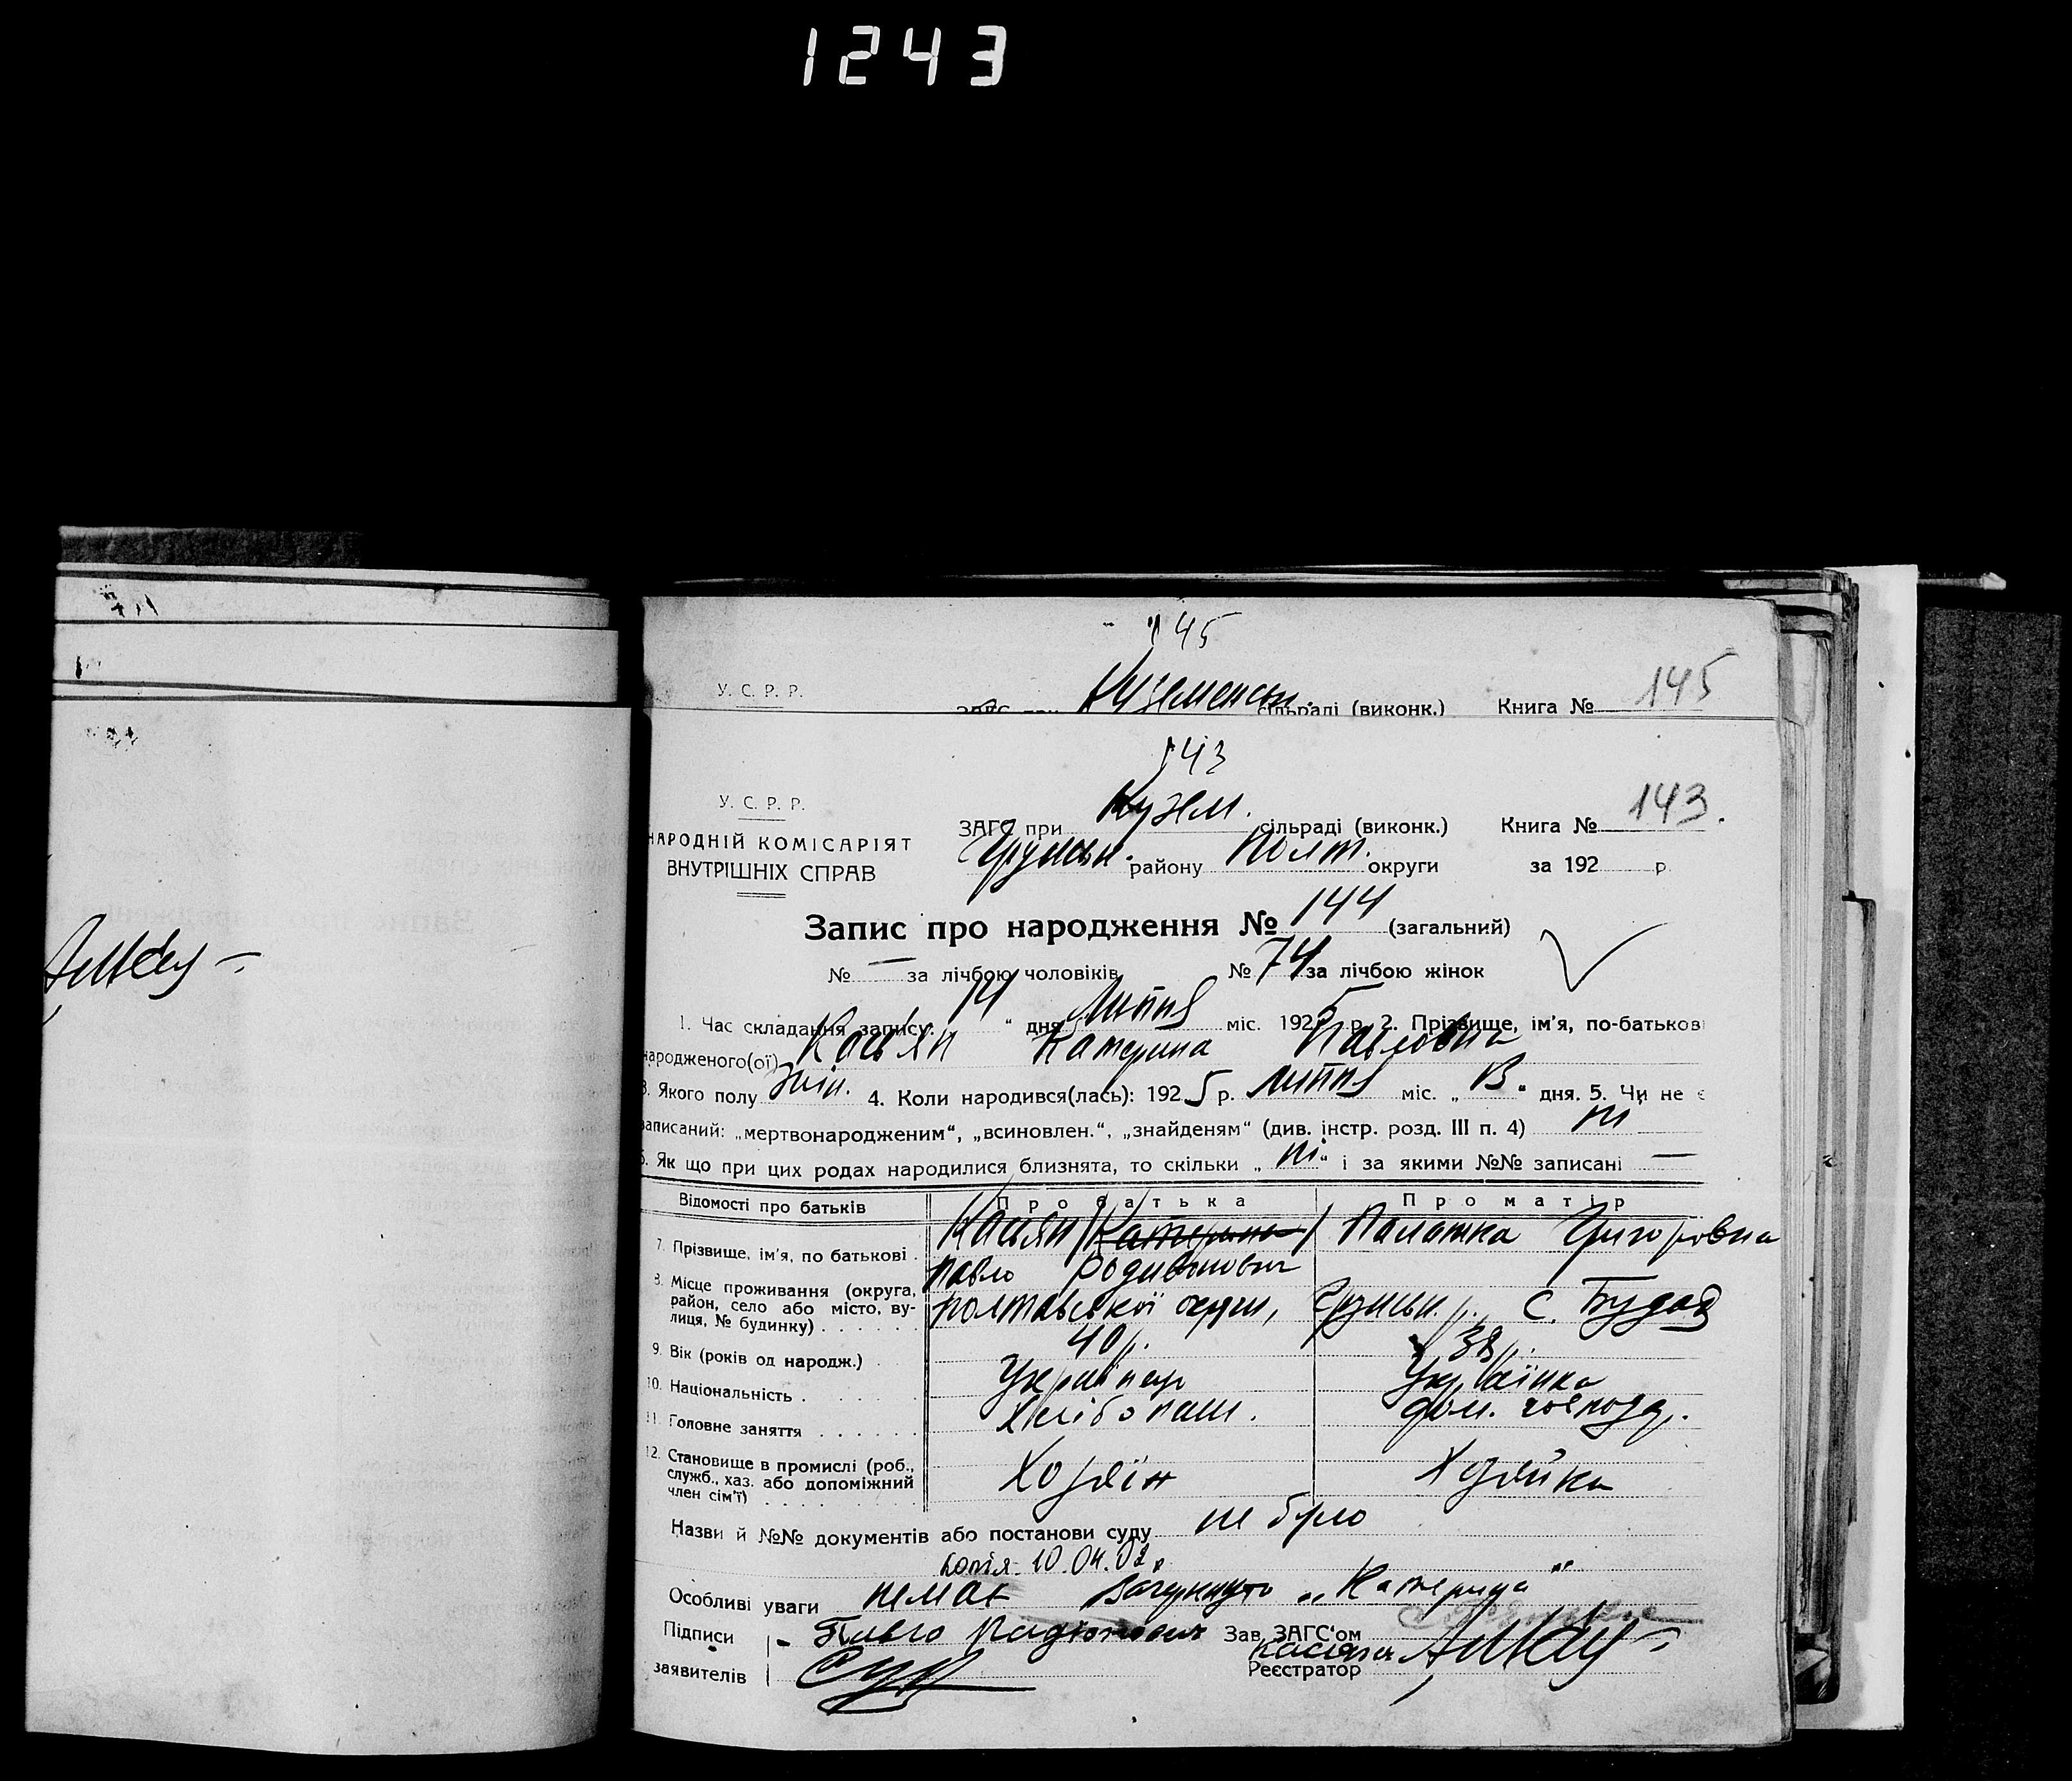 1243
145
У. С. Р. Р.
ЗАГС при Куземенськ. сільраді (виконк.) Книга № 145
143
У. С. Р. Р.
НАРОДНІЙ КОМІСАРІЯТ
ВНУТРІШНІХ СПРАВ
ЗАГС при Кузем. сільраді (виконк.) Книга № 143.
Грунськ. району Полт. округи за 192 р.
Запис про народження № 144 (загальний)
№ — за лічбою чоловіків № 74 за лічбою жінок
1. Час складання запису: 14 " дня Липня міс. 1925 р. 2. Прізвище, ім'я, по-батькові
народженого(ої) Касьян Катерина Павловна
3. Якого полу жін. 4. Коли народився(лась): 1925 р. липня міс. „ 13 " дня. 5. Чи не є
записаний: „мертвонародженим", „всиновлен.", „знайденям" (див. інстр. розд. III п. 4) ні
6. Як що при цих родах народилися близнята, то скільки „ ні " і за якими №№ записані —
Відомості про батьків Про батька Про матір
7. Прізвище, ім'я, по батькові . Касьян (Катерина) Палажка Григоровна
Павло Родивонович
8. Місце проживання (округа, район, село або місто, вулиця, № будинку) . . . . . . Полтавської округи, Грунськ. р. с. Будов
9. Вік (років од народж.) 40 р. 38 р.
10. Національність . Українець Українка
11. Головне заняття . . . . . . Хлібопаш. дом. господ.
12. Становище в промислі (роб., служб., хаз. або допоміжний член сім'ї) . . . . . . Хозяїн Хозяйка
Назви й №№ документів або постанови суду не було
копія 10.04.02р
Особливі уваги немає „Катерина"
Підписи Павло Радіонович Зав. ЗАГС'ом
Касьян
заявителів Реєстратор